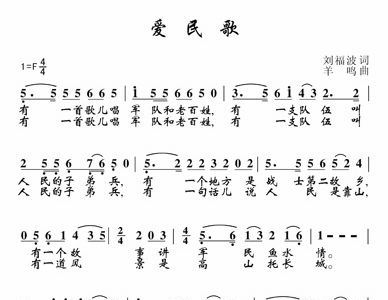 爱 民 歌
1=F 4/4
刘福波 词
羊 鸣 曲
5· 5 | 5 5 5 3 5 | i 5 5 5 5 5 0 | 5· 2 | 3 2 i 2· 2 |
有 一首歌儿唱 军 队和老百姓, 有 一支队 伍 叫
有 一首歌儿唱 军 队和老百姓, 有 一支队 伍 叫
2 5 5 6 7 6 5 0 | 5· 2 | 5 i 6 4 5 · 6 | 1 2 4 3 2 |
人 民的子 弟 兵, 有 一个地方 是 战 士第二故 乡,
人 民的子 弟 兵, 有 一句话儿 说 人 民是靠山,
0 5 6 1 4 3 5 | 2/4 2 0 3 | 4/4 5· 6 1 3 2 1 6 | 1 - - - |
有一个故 事讲 军 民 鱼水 情。
有一道风 景是 高 山 托长 城。